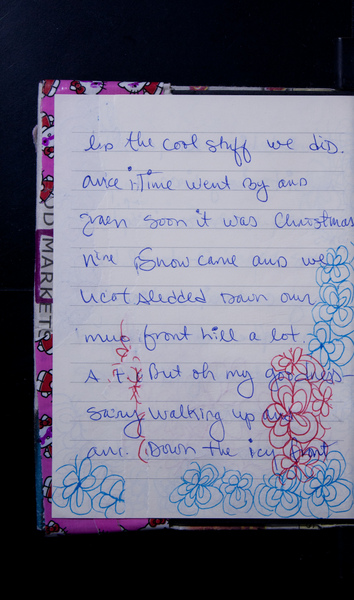 the cool stuff we did.
Time went by and
soon it was Christmas
Snow came and we
sledded down our
front hill a lot.
But oh my goodness
walking up and
Down the icy front
MARKET